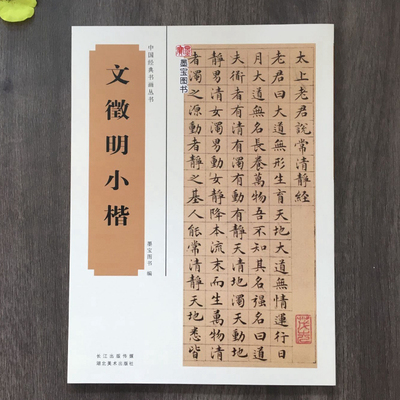 中国经典书画丛书
文徵明小楷
墨宝图书 编
长江出版传媒
湖北美术出版社
墨宝图书
太上老君說常清靜經
老君曰大道無形生育天地大道無情運行日
月大道無名長養萬物吾不知其名強名曰道
夫道者有清有濁有動有靜天清地濁天動地
靜男清女濁男動女靜降本流末而生萬物清
者濁之源動者靜之基人能常清靜天地悉皆